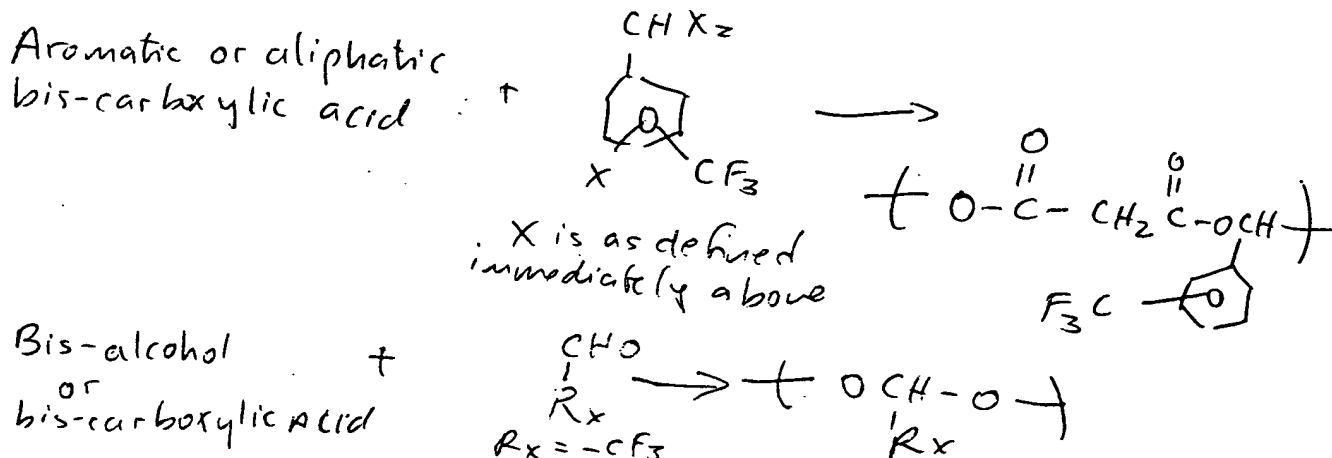 Aromatic or aliphatic
bis-carboxylic acid
+
CHX2
X
CF3
X is as defined
immediately above
O
O
O-C-CH2C-OCH
F3C
O
Bis-alcohol
or
bis-carboxylic Acid
+
CHO
Rx
Rx = -CF3
OCH-O
Rx